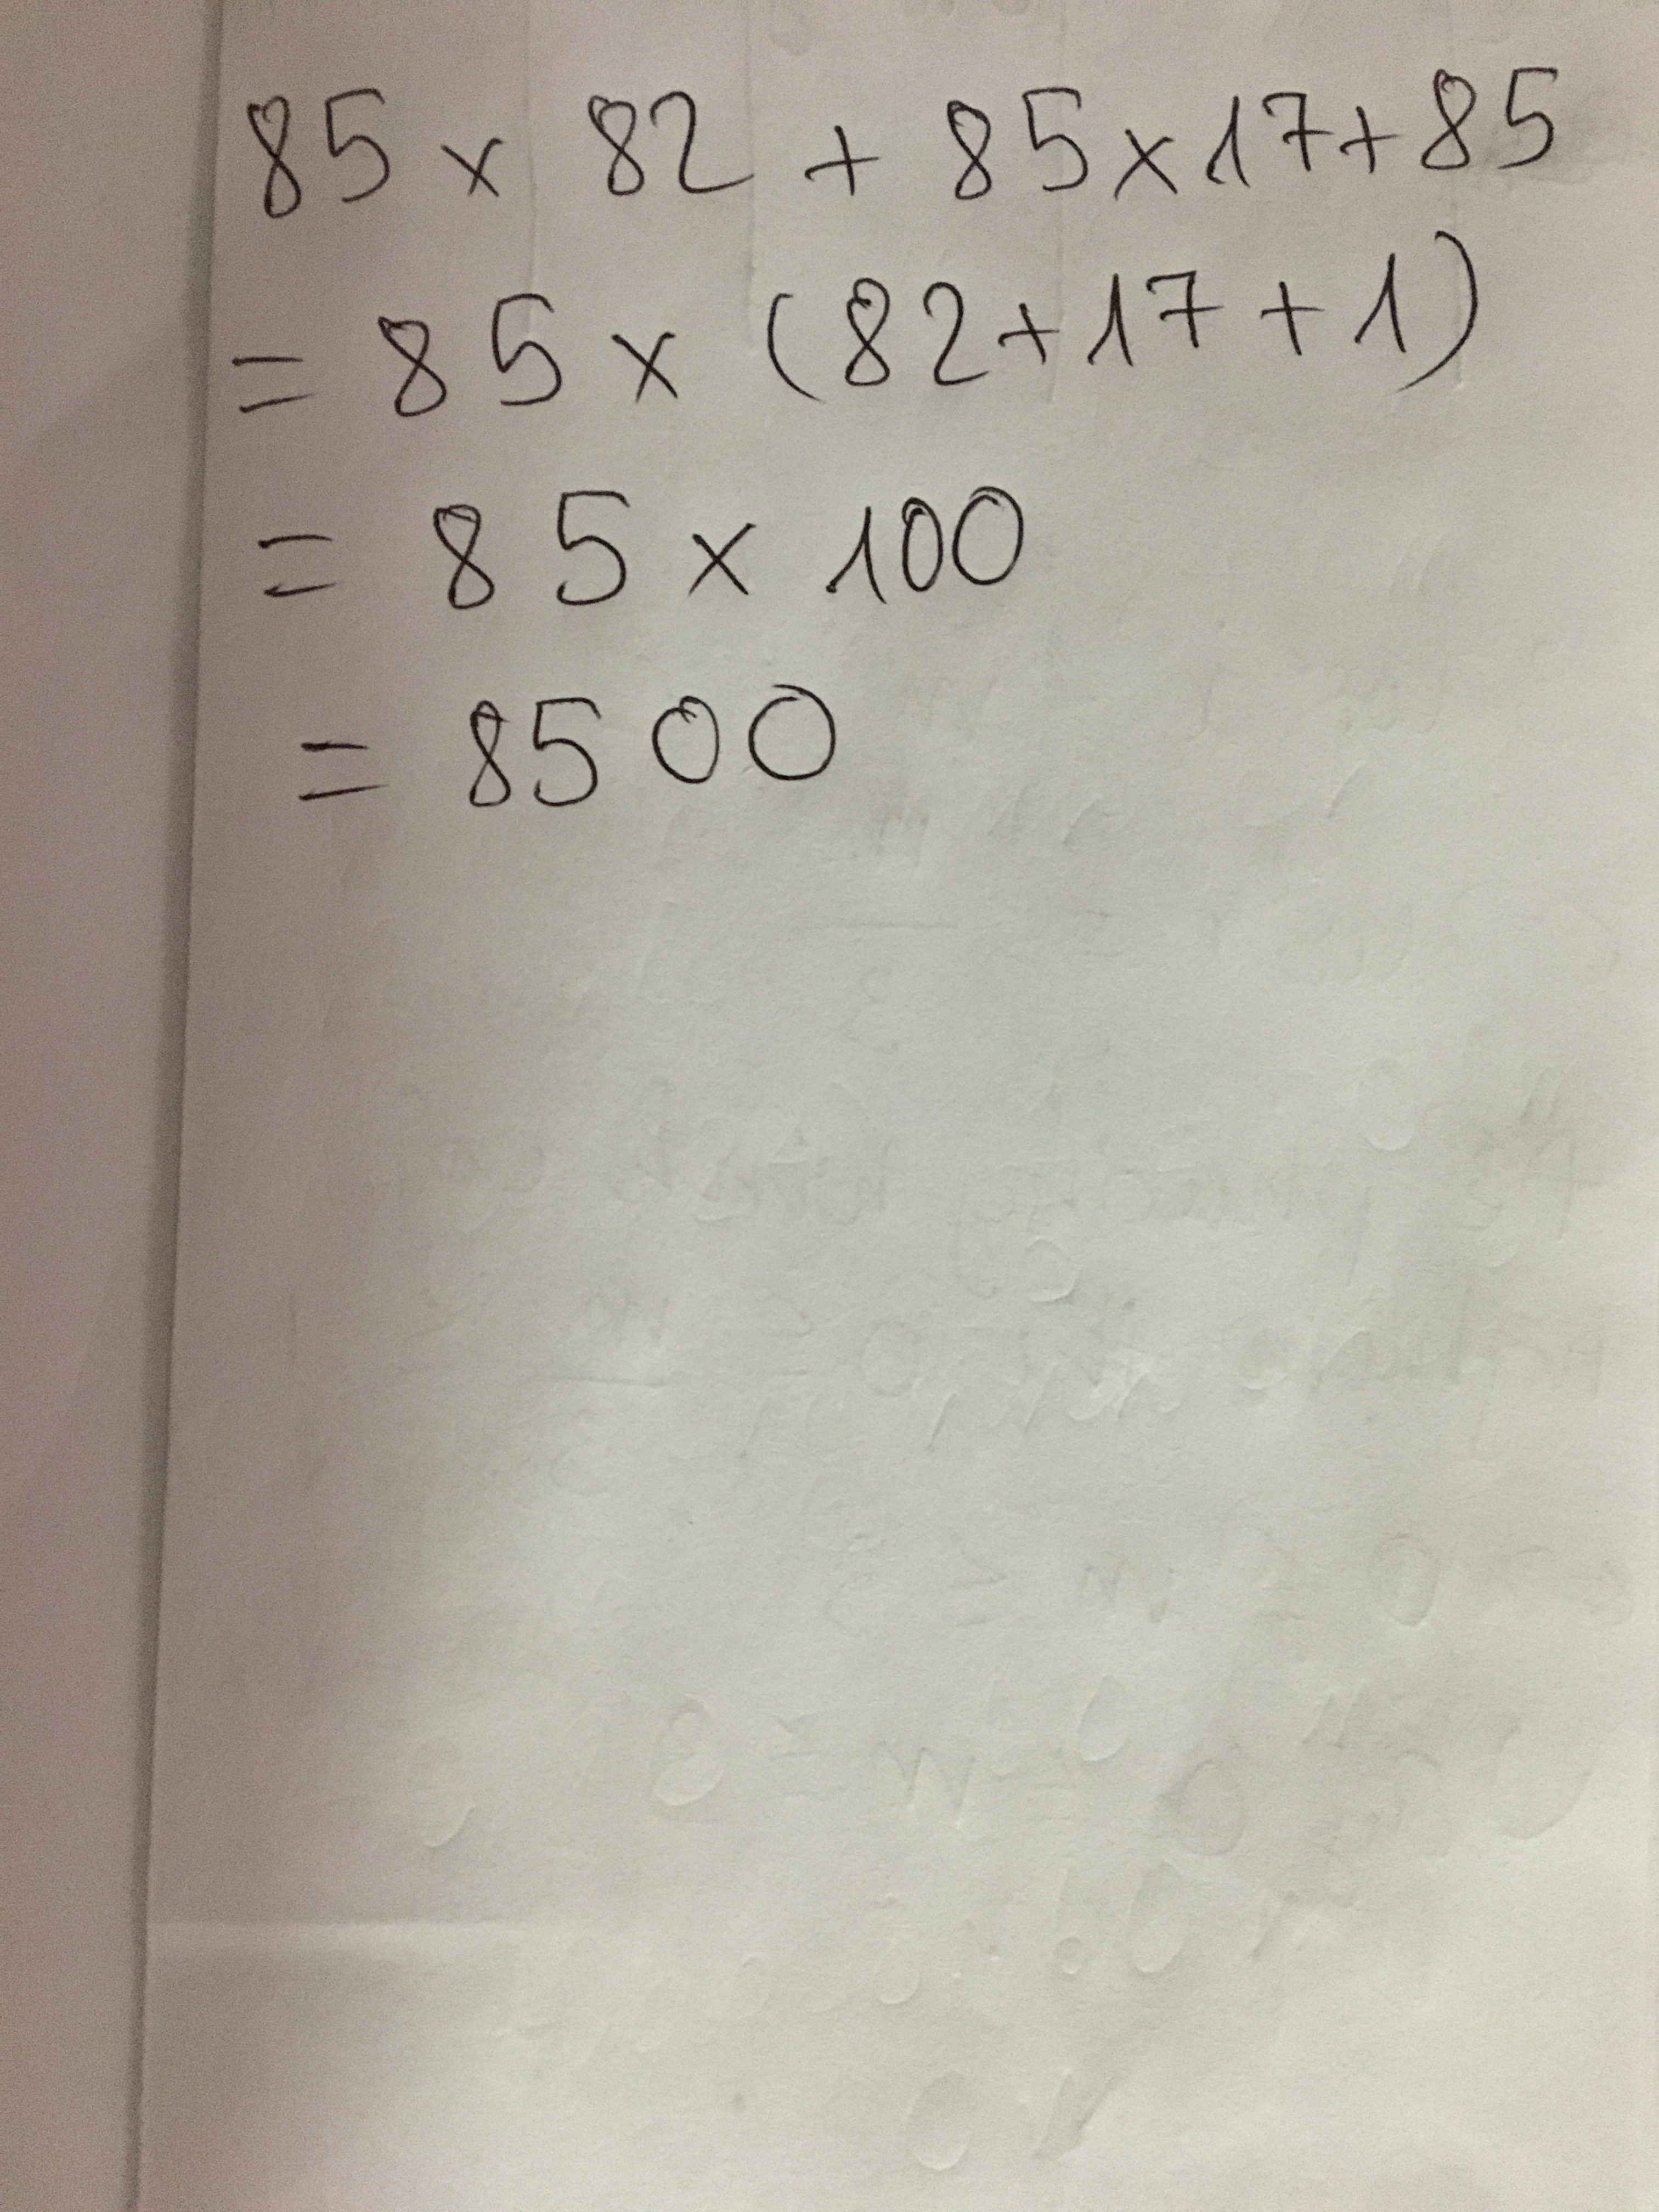 85 x 82 + 85 x 17 + 85
= 85 x (82 + 17 + 1)
= 85 x 100
= 8500